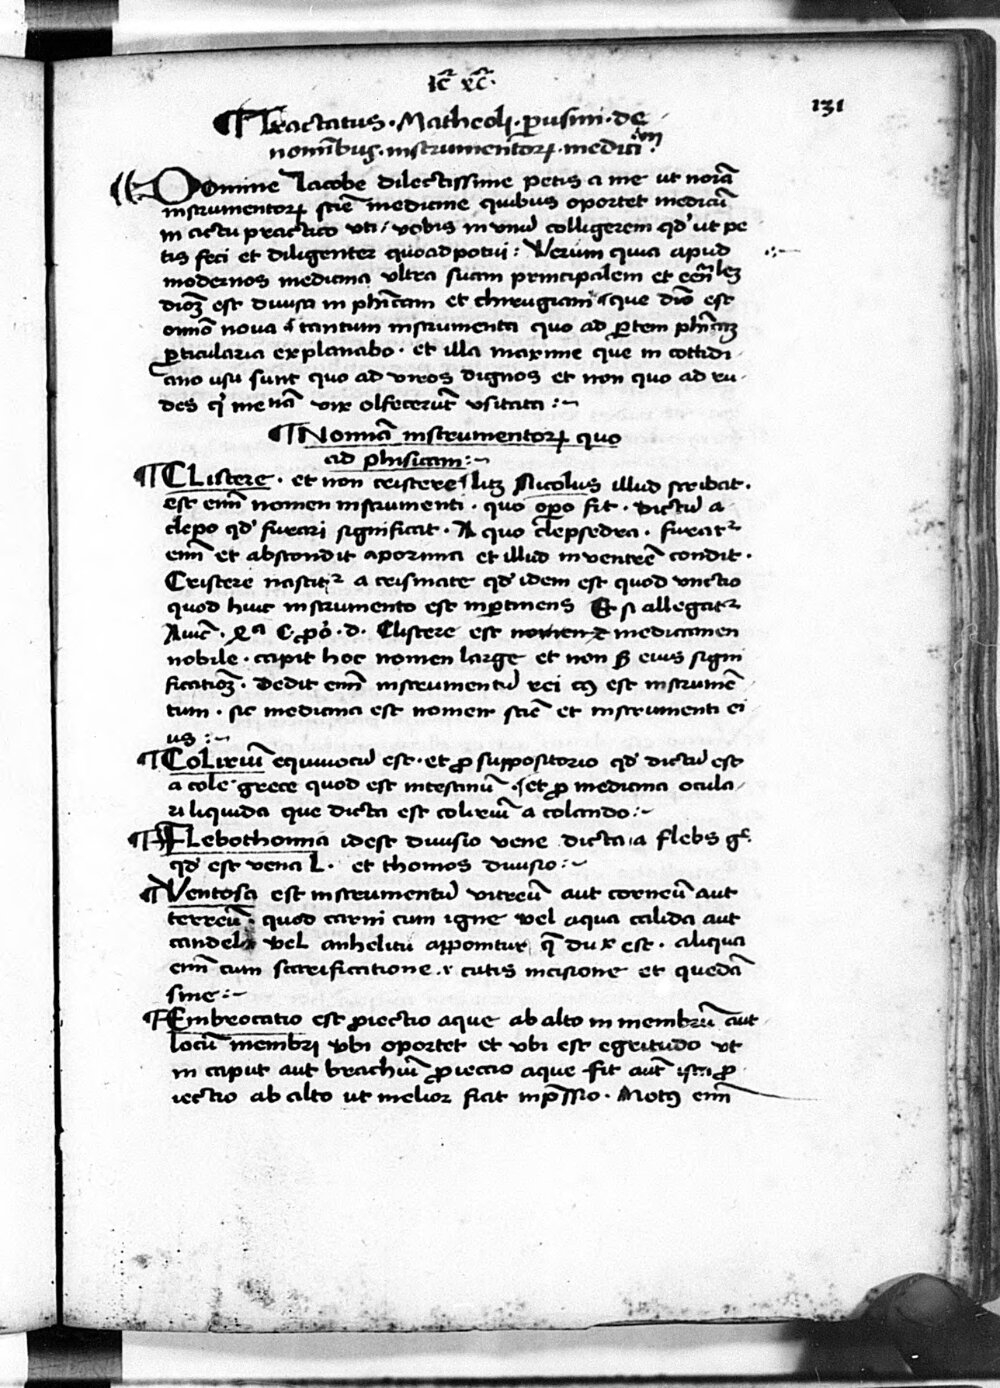 Ic̄ xc̄.
131
¶ Tractatus . Matheoli . perusini . de
nomībus . instrumentoꝝ . medici
Domine Iacobe dilectissime petis a me ut noīa
instrumentoꝝ sciē medicine quibus oportet medicū
in actu practico uti / uobis in unū colligerem qd' ut pe
tis feci et diligenter quoad potui : Verum quia apud
modernos medicina ultra suam principalem et
est diuisa in phīcam et chirugiam que diō est
oīno noua tantum instrumenta quo ad ꝑtem phīcaꝫ
ꝑticularia explanabo . et illa maxime que in cottidi
ano usu sunt quo ad uiros dignos et non quo ad ru
des qͥ me uix olfecerūt usitata :~
¶ Nomīa instrumentoꝝ quo
ad phisicam :~
¶ CListere . et non cristere lꝫ Nicolus illud scribat .
est enī nomen instrumenti . quo oꝑo fit . dictū a
clepo qd' furari significat . A quo clepsedra . furatᷣ
enī et abscondit aporima et illud in uentrē condit .
Cristere nascitᷣ a crismate qd' idem est quod unctio
quod huic instrumento est inꝑtinens Et si allegatᷣ
Auic̄ . d . Clistere est nomen medicamen
nobile . capit hoc nomen large et non ẞ eius signi
ficatiōꝫ . dedit enī instrumentū rei est instrumē
tum . sic medicina est nomen sciē et instrumenti ei
us :~
¶ CoLiriū equiuocū est . et ꝓ suppositorio qd' dictū est
a cole grece quod est intestinū . et ꝓ medicina ocula
ri liquida que dicta est coliriū a colando :~
¶ FLebothoma idest diuisio uene dicta a flebs gͨ.
qd' est uena L . et thomos diuisio :~
¶ Ventosa est instrumentū uitreū aut corneū aut
terreū . quod carni cum igne uel aqua calida aut
candela ueL anhelitu apponitur q̄ duꝝ est . aliqua
enī cum scarificatione . cutis incisione et quedā
sine :~
¶ Embrocatio est ꝓiectio aque ab alto in membrū aut
locū membri ubi oportet et ubi est egritudo ut
in caput aut brachiū ꝓiectio aque fit aūt ista ꝓ
iectio ab alto ut melior fiat inp̄ssio . Motꝰ enī